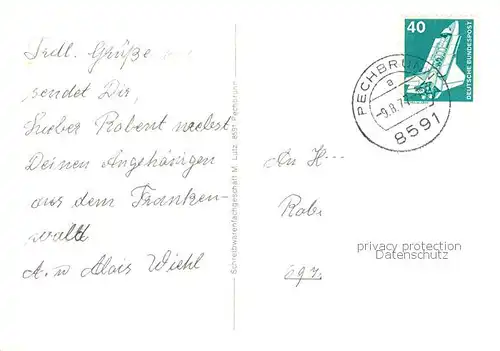 Frdl. Grüße
sendet Dir,
Lieber Robert nebst
Deinen Angehörigen
aus dem Franken-
wald
A. u Alois Wiehl
Schreibwarenfachgeschäft M. Lutz, 8591 Pechbrunn
40
DEUTSCHE BUNDESPOST
PECHBRUNN
a
-9.8.7
8591
An H...
Robe
privacy protection
Datenschutz